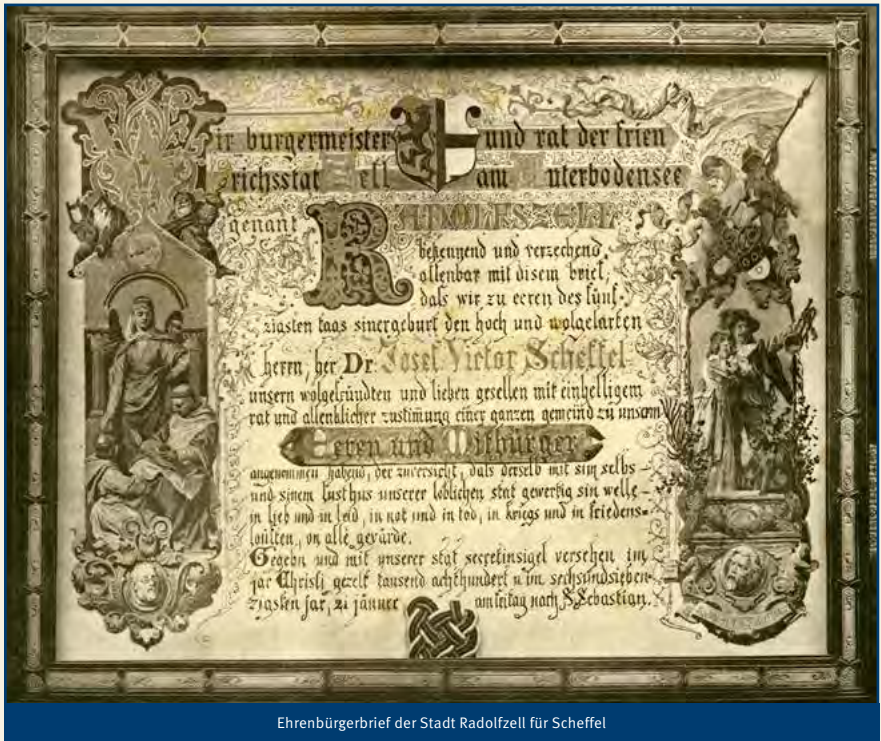 Wir burgermeister und rat der frien
richsstat Zell am Unterbodensee
genant RADOLFSZELL
bekennend und verzechend
offenbar mit disem brief,
dass wir zu eeren des fünf-
zigsten tags siner geburt den hoch und wolgelarten
herrn, her Dr. Josef Victor Scheffel
unsern wolgefründten und lieben gesellen mit einhelligem
rat und allenklicher zustimung einer ganzen gemeind zu unserm
Eeren und Mitbürger
angenommen habend, der zuversicht, dass derselb mit sim selbs
und sinem lusthus unserer loblichen stat gewertig sin welle
in lieb und in leid, in not und in tod, in kriegs und in friedens-
louften, on alle gevärde.
Gegebn und mit unserer stat secretinsigel versehen im
jar Christi gezelt tausend achthundert u im sechsundsieben-
zigsten jar, 21 jänner am fritag nach S. Sebastian.
Ehrenbürgerbrief der Stadt Radolfzell für Scheffel